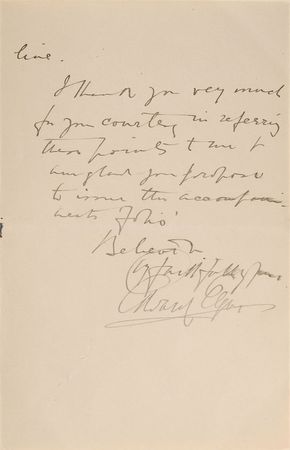 line.
I thank you very much
for your courtesy in referring
these points to me &
am glad you propose
to issue the accompani-
ments folio'
Believe me
Yrs faithfully
Edward Elgar